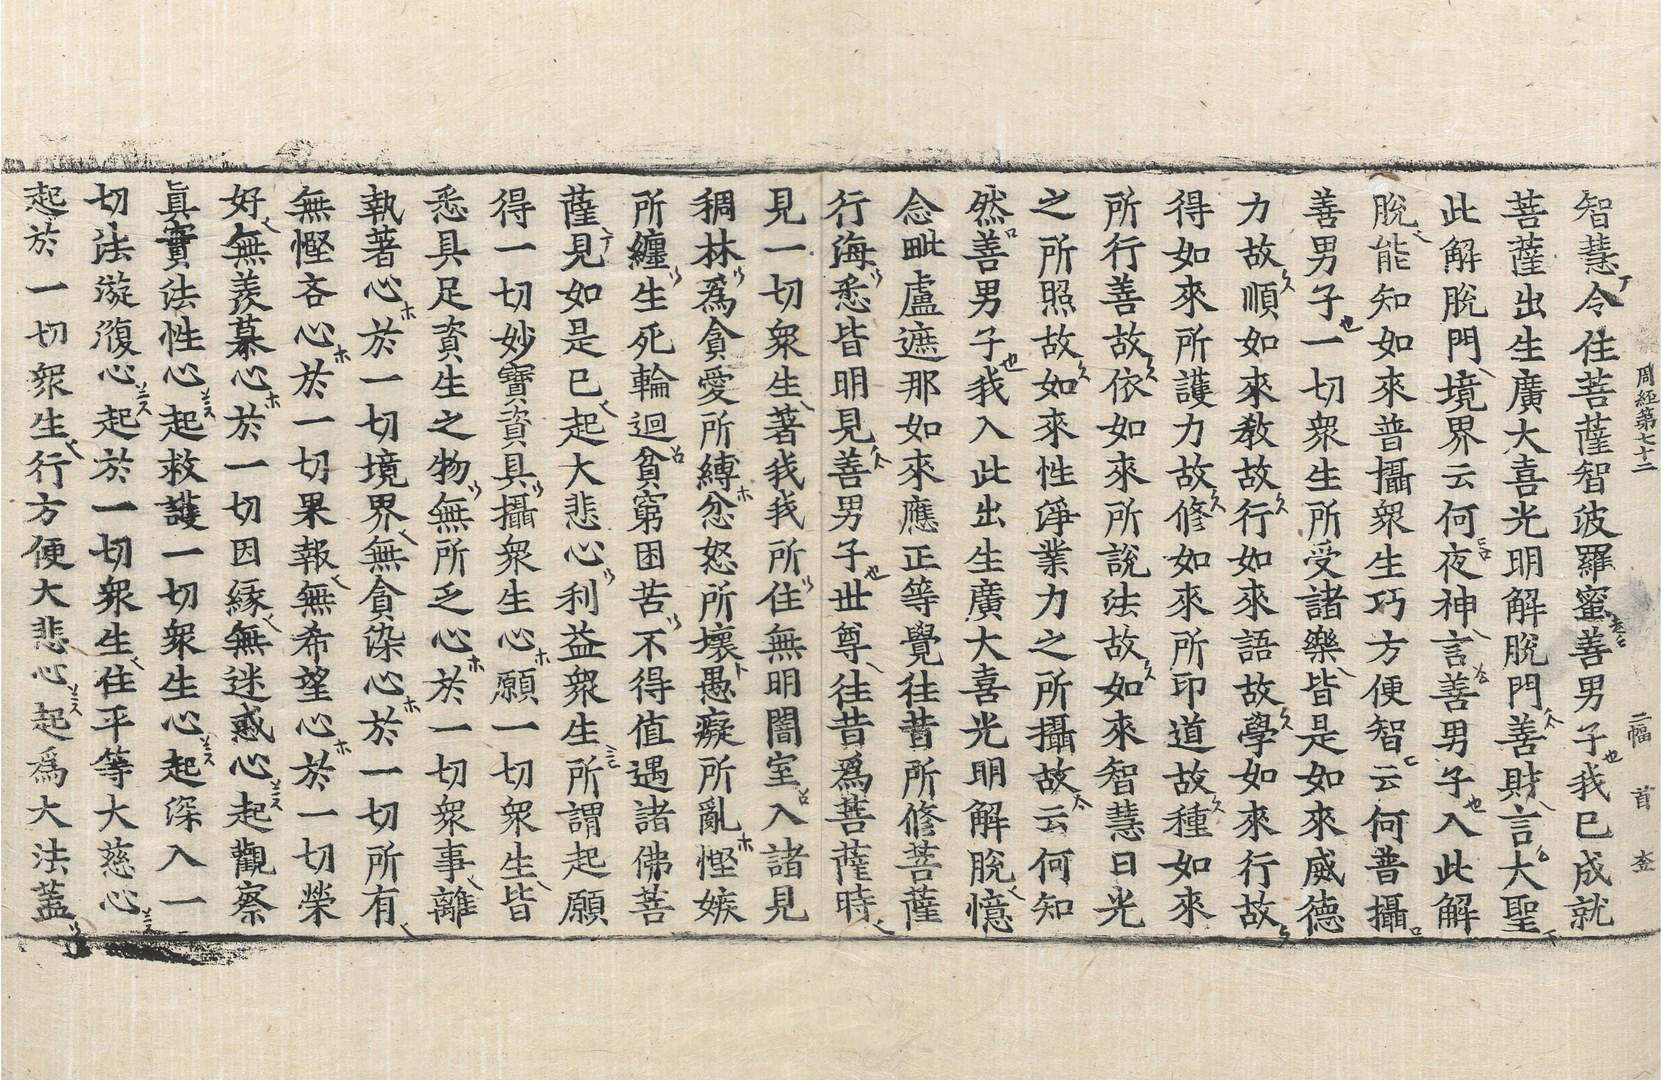 周經第七十二　二幅　首
智慧令住菩薩智波羅蜜善男子我已成就
菩薩出生廣大喜光明解脫門善財言大聖
此解脫門境界云何夜神言善男子入此解
脫能知如來普攝衆生巧方便智云何普攝
善男子一切衆生所受諸樂皆是如來威德
力故順如來敎故行如來語故學如來行故
得如來所護力故修如來所印道故種如來
所行善故依如來所說法故如來智慧日光
之所照故如來性淨業力之所攝故云何知
然善男子我入此出生廣大喜光明解脫憶
念毗盧遮那如來應正等覺往昔所修菩薩
行海悉皆明見善男子世尊往昔爲菩薩時
見一切衆生著我我所住無明闇室入諸見
稠林爲貪愛所縛忿怒所壞愚癡所亂慳嫉
所纏生死輪迴貧窮困苦不得值遇諸佛菩
薩見如是已起大悲心利益衆生所謂起願
得一切妙寶資具攝衆生心願一切衆生皆
悉具足資生之物無所乏心於一切衆事離
執著心於一切境界無貪染心於一切所有
無慳吝心於一切果報無希望心於一切榮
好無羨慕心於一切因緣無迷惑心起觀察
眞實法性心起救護一切衆生心起深入一
切法漩澓心起於一切衆生住平等大慈心
起於一切衆生行方便大悲心起爲大法蓋